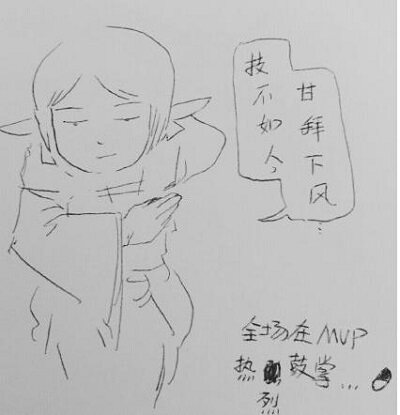 技不如人，
甘拜下风...
全场在MVP
热烈鼓掌...